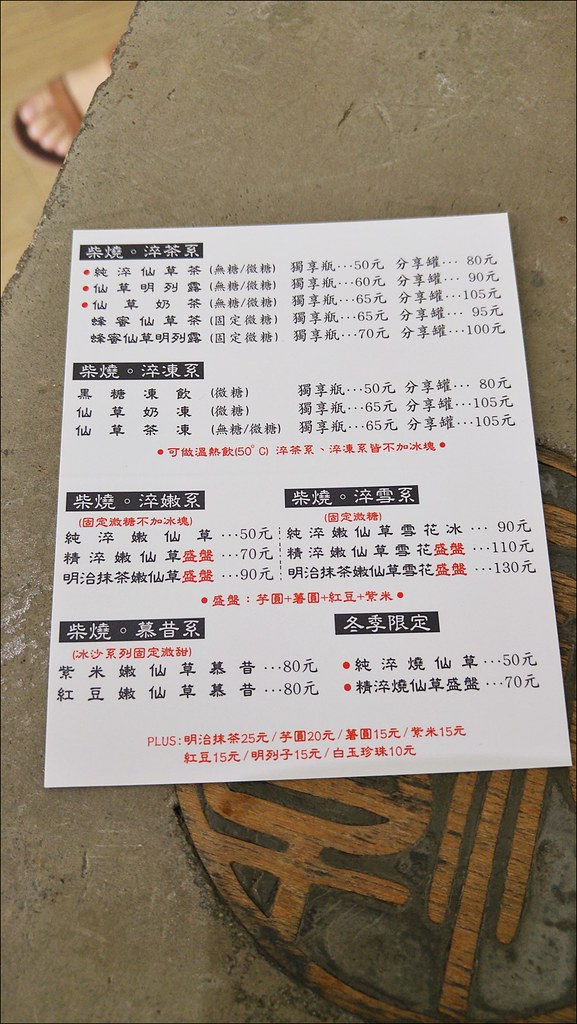 柴燒。淬茶系
●純淬仙草茶(無糖/微糖) 獨享瓶…50元 分享罐… 80元
●仙草明列露(無糖/微糖) 獨享瓶…60元 分享罐… 90元
●仙草奶茶(無糖/微糖) 獨享瓶…65元 分享罐…105元
蜂蜜仙草茶(固定微糖) 獨享瓶…65元 分享罐… 95元
蜂蜜仙草明列露(固定微糖) 獨享瓶…70元 分享罐…100元
柴燒。淬凍系
黑糖凍飲(微糖) 獨享瓶…50元 分享罐… 80元
仙草奶凍(微糖) 獨享瓶…65元 分享罐…105元
仙草茶凍(無糖/微糖) 獨享瓶…65元 分享罐…105元
●可做溫熱飲(50°C) 淬茶系、淬凍系皆不加冰塊●
柴燒。淬嫩系
(固定微糖不加冰塊)
純淬嫩仙草…50元
精淬嫩仙草盛盤…70元
明治抹茶嫩仙草盛盤…90元
柴燒。淬雪系
(固定微糖)
純淬嫩仙草雪花冰… 90元
精淬嫩仙草雪花盛盤…110元
明治抹茶嫩仙草雪花盛盤…130元
●盛盤：芋圓+薯圓+紅豆+紫米●
柴燒。慕昔系
(冰沙系列固定微甜)
紫米嫩仙草慕昔…80元
紅豆嫩仙草慕昔…80元
冬季限定
●純淬燒仙草…50元
●精淬燒仙草盛盤…70元
PLUS:明治抹茶25元/芋圓20元/薯圓15元/紫米15元
紅豆15元/明列子15元/白玉珍珠10元